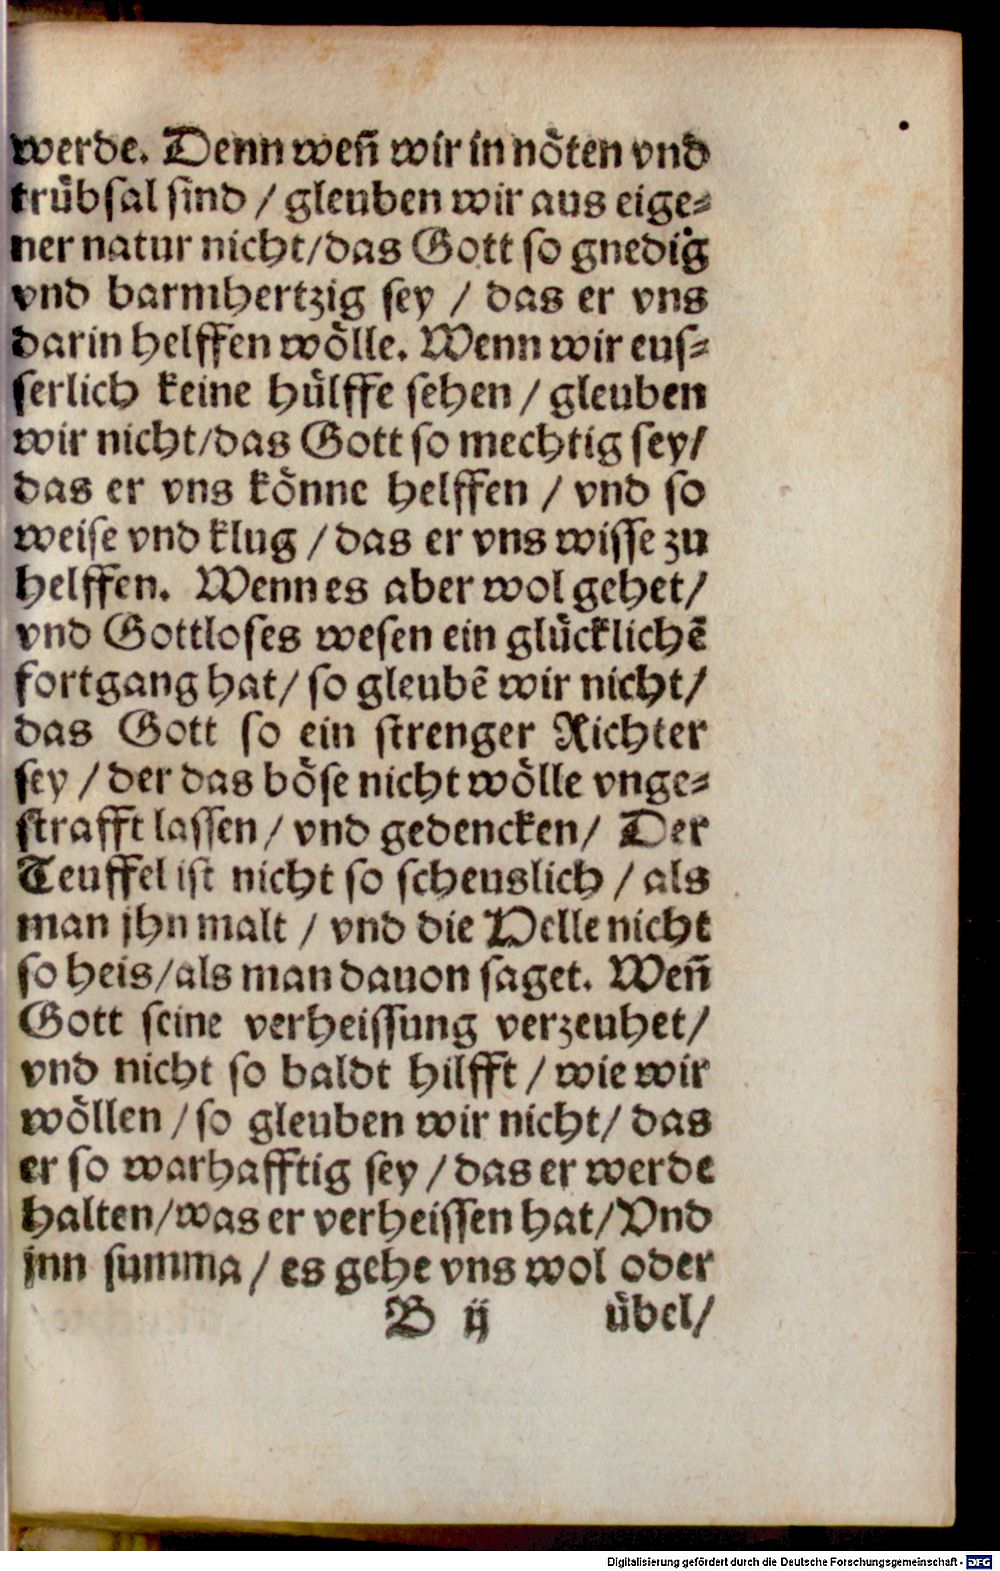 werde. Denn weñ wir in nöten vnd
trübsal sind / gleuben wir aus eige⸗
ner natur nicht/das Gott so gnedig
vnd barmhertzig sey / das er vns
darin helffen wölle. Wenn wir eus⸗
serlich keine hülffe sehen / gleuben
wir nicht/das Gott so mechtig sey/
das er vns könne helffen / vnd so
weise vnd klug / das er vns wisse zu
helffen. Wenn es aber wol gehet/
vnd Gottloses wesen ein glücklichẽ
fortgang hat/ so gleubẽ wir nicht/
das Gott so ein strenger Richter
sey / der das böse nicht wölle vnge⸗
strafft lassen/ vnd gedencken/ Der
Teuffel ist nicht so scheuslich / als
man jhn malt / vnd die Helle nicht
so heis/als man dauon saget. Weñ
Gott seine verheissung verzeuhet/
vnd nicht so baldt hilfft / wie wir
wöllen / so gleuben wir nicht/ das
er so warhafftig sey / das er werde
halten/was er verheissen hat/Vnd
jnn summa / es gehe vns wol oder
B ij übel/
Digitalisierung gefördert durch die Deutsche Forschungsgemeinschaft - DFG